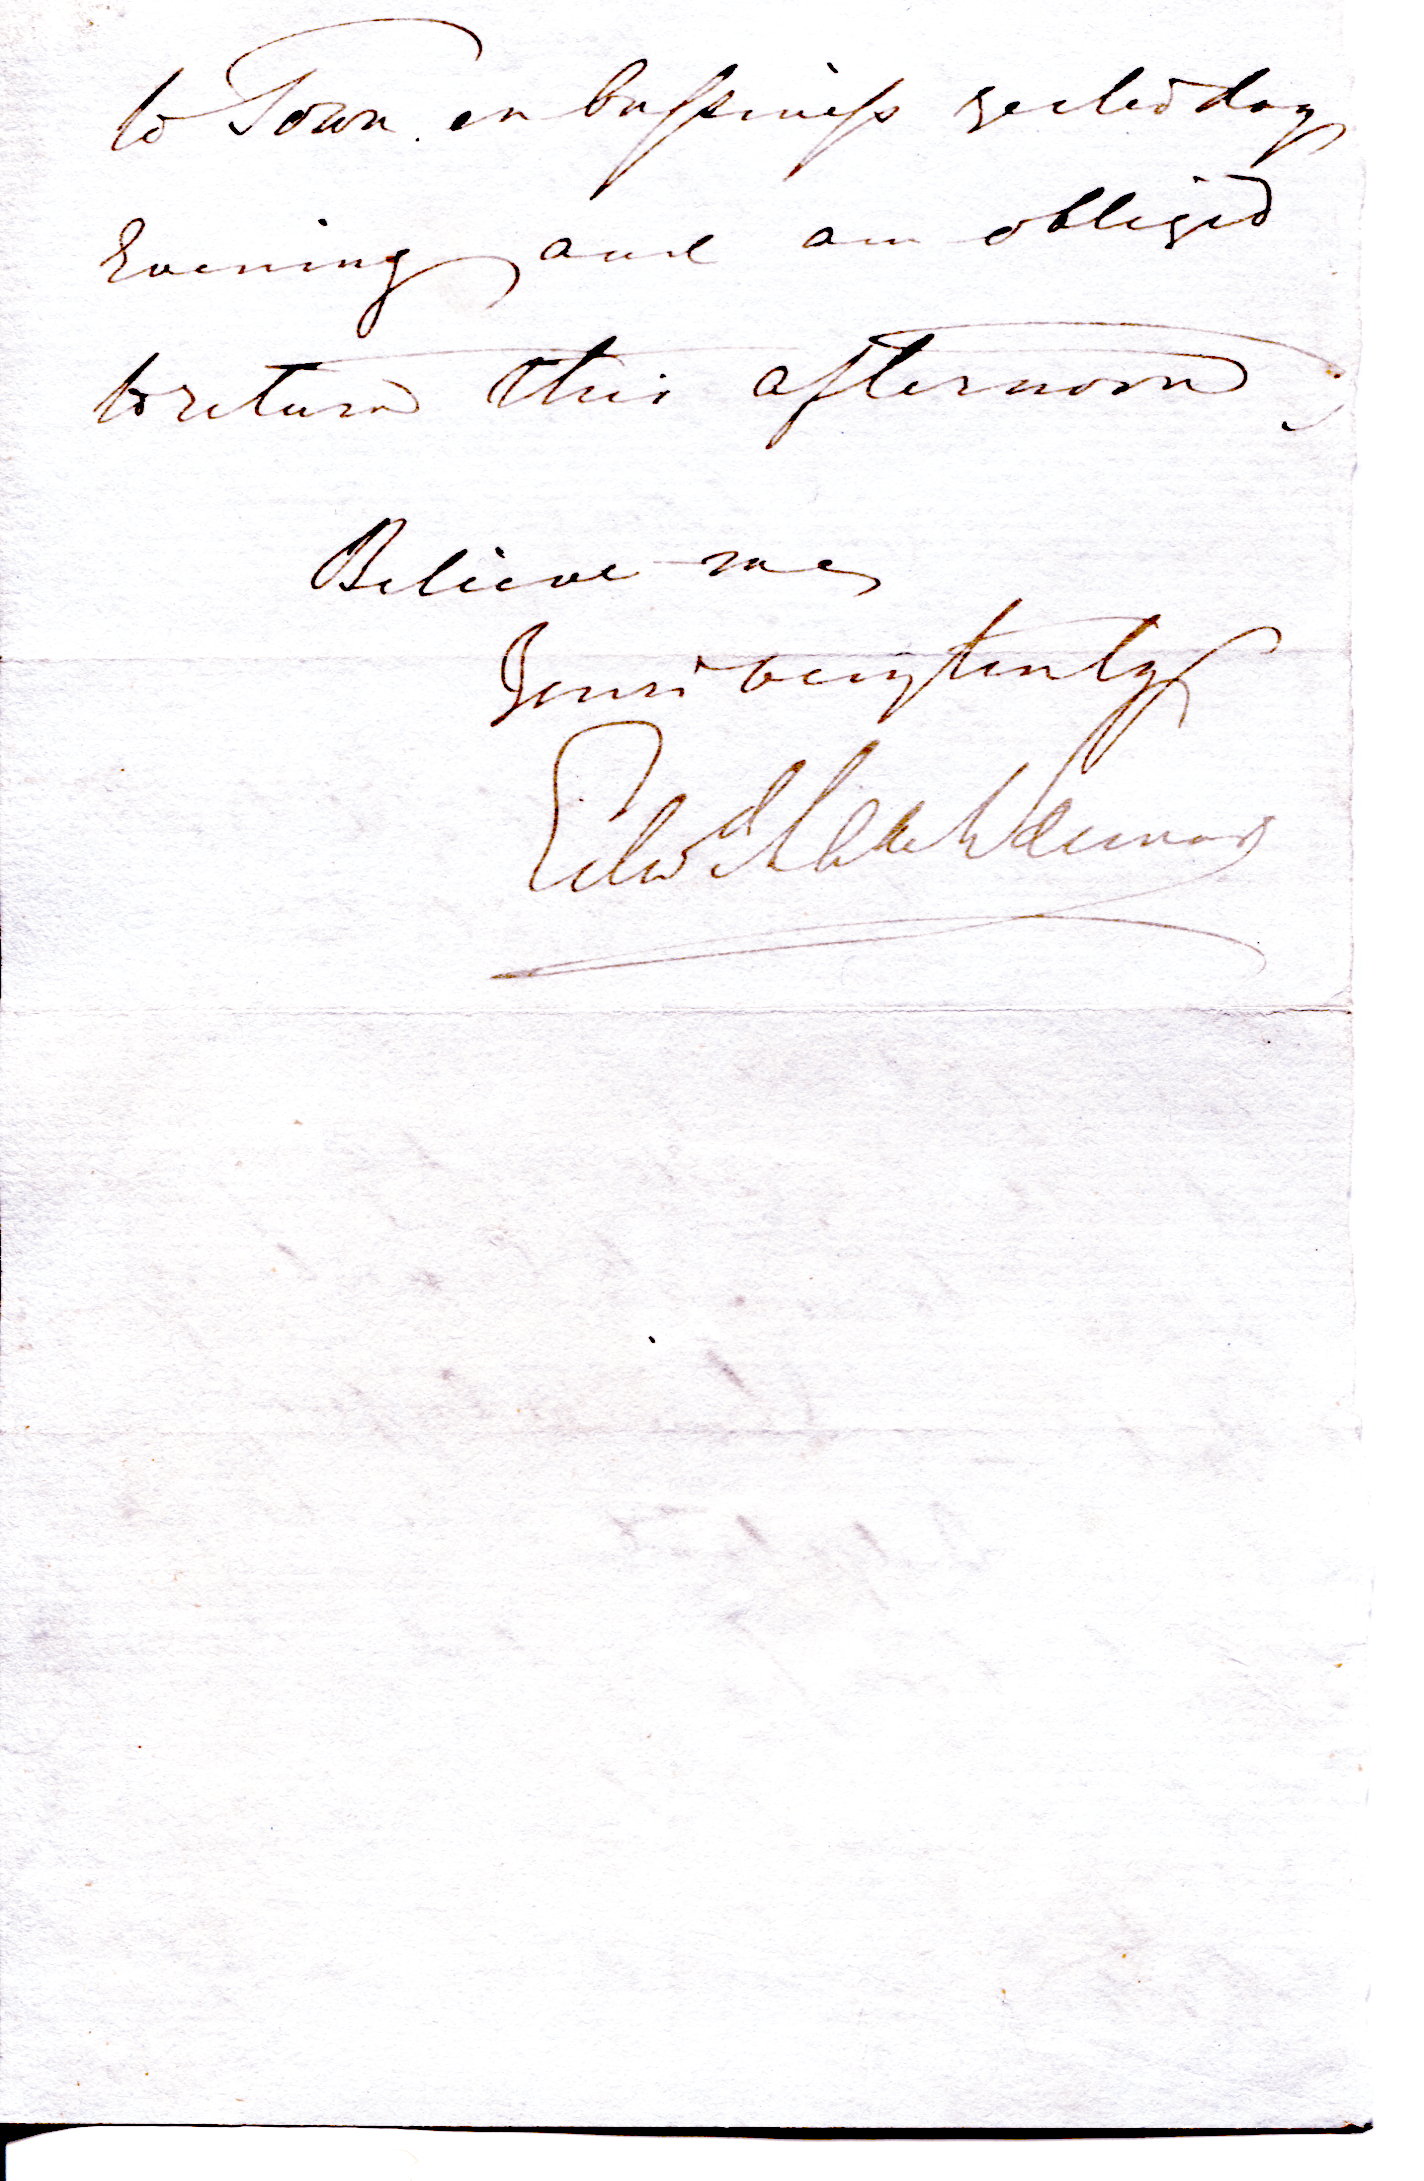 to Town on bussiness yesterday
Evening, and am obliged
to return this afternoon,
Believe me,
Yours very truly
Edwd